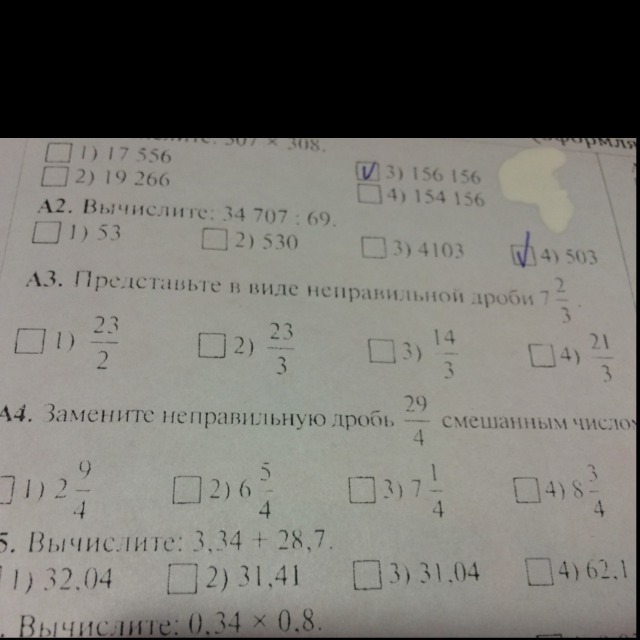 307 × 308.
1) 17 556
3) 156 156
2) 19 266
4) 154 156
А2. Вычислите: 34 707 : 69.
1) 53 2) 530 3) 4103 4) 503
А3. Представьте в виде неправильной дроби 7 2/3.
1) 23/2 2) 23/3 3) 14/3 4) 21/3
А4. Замените неправильную дробь 29/4 смешанным числом
1) 2 9/4 2) 6 5/4 3) 7 1/4 4) 8 3/4
5. Вычислите: 3,34 + 28,7.
1) 32,04 2) 31,41 3) 31,04 4) 62,1
Вычислите: 0,34 × 0,8.